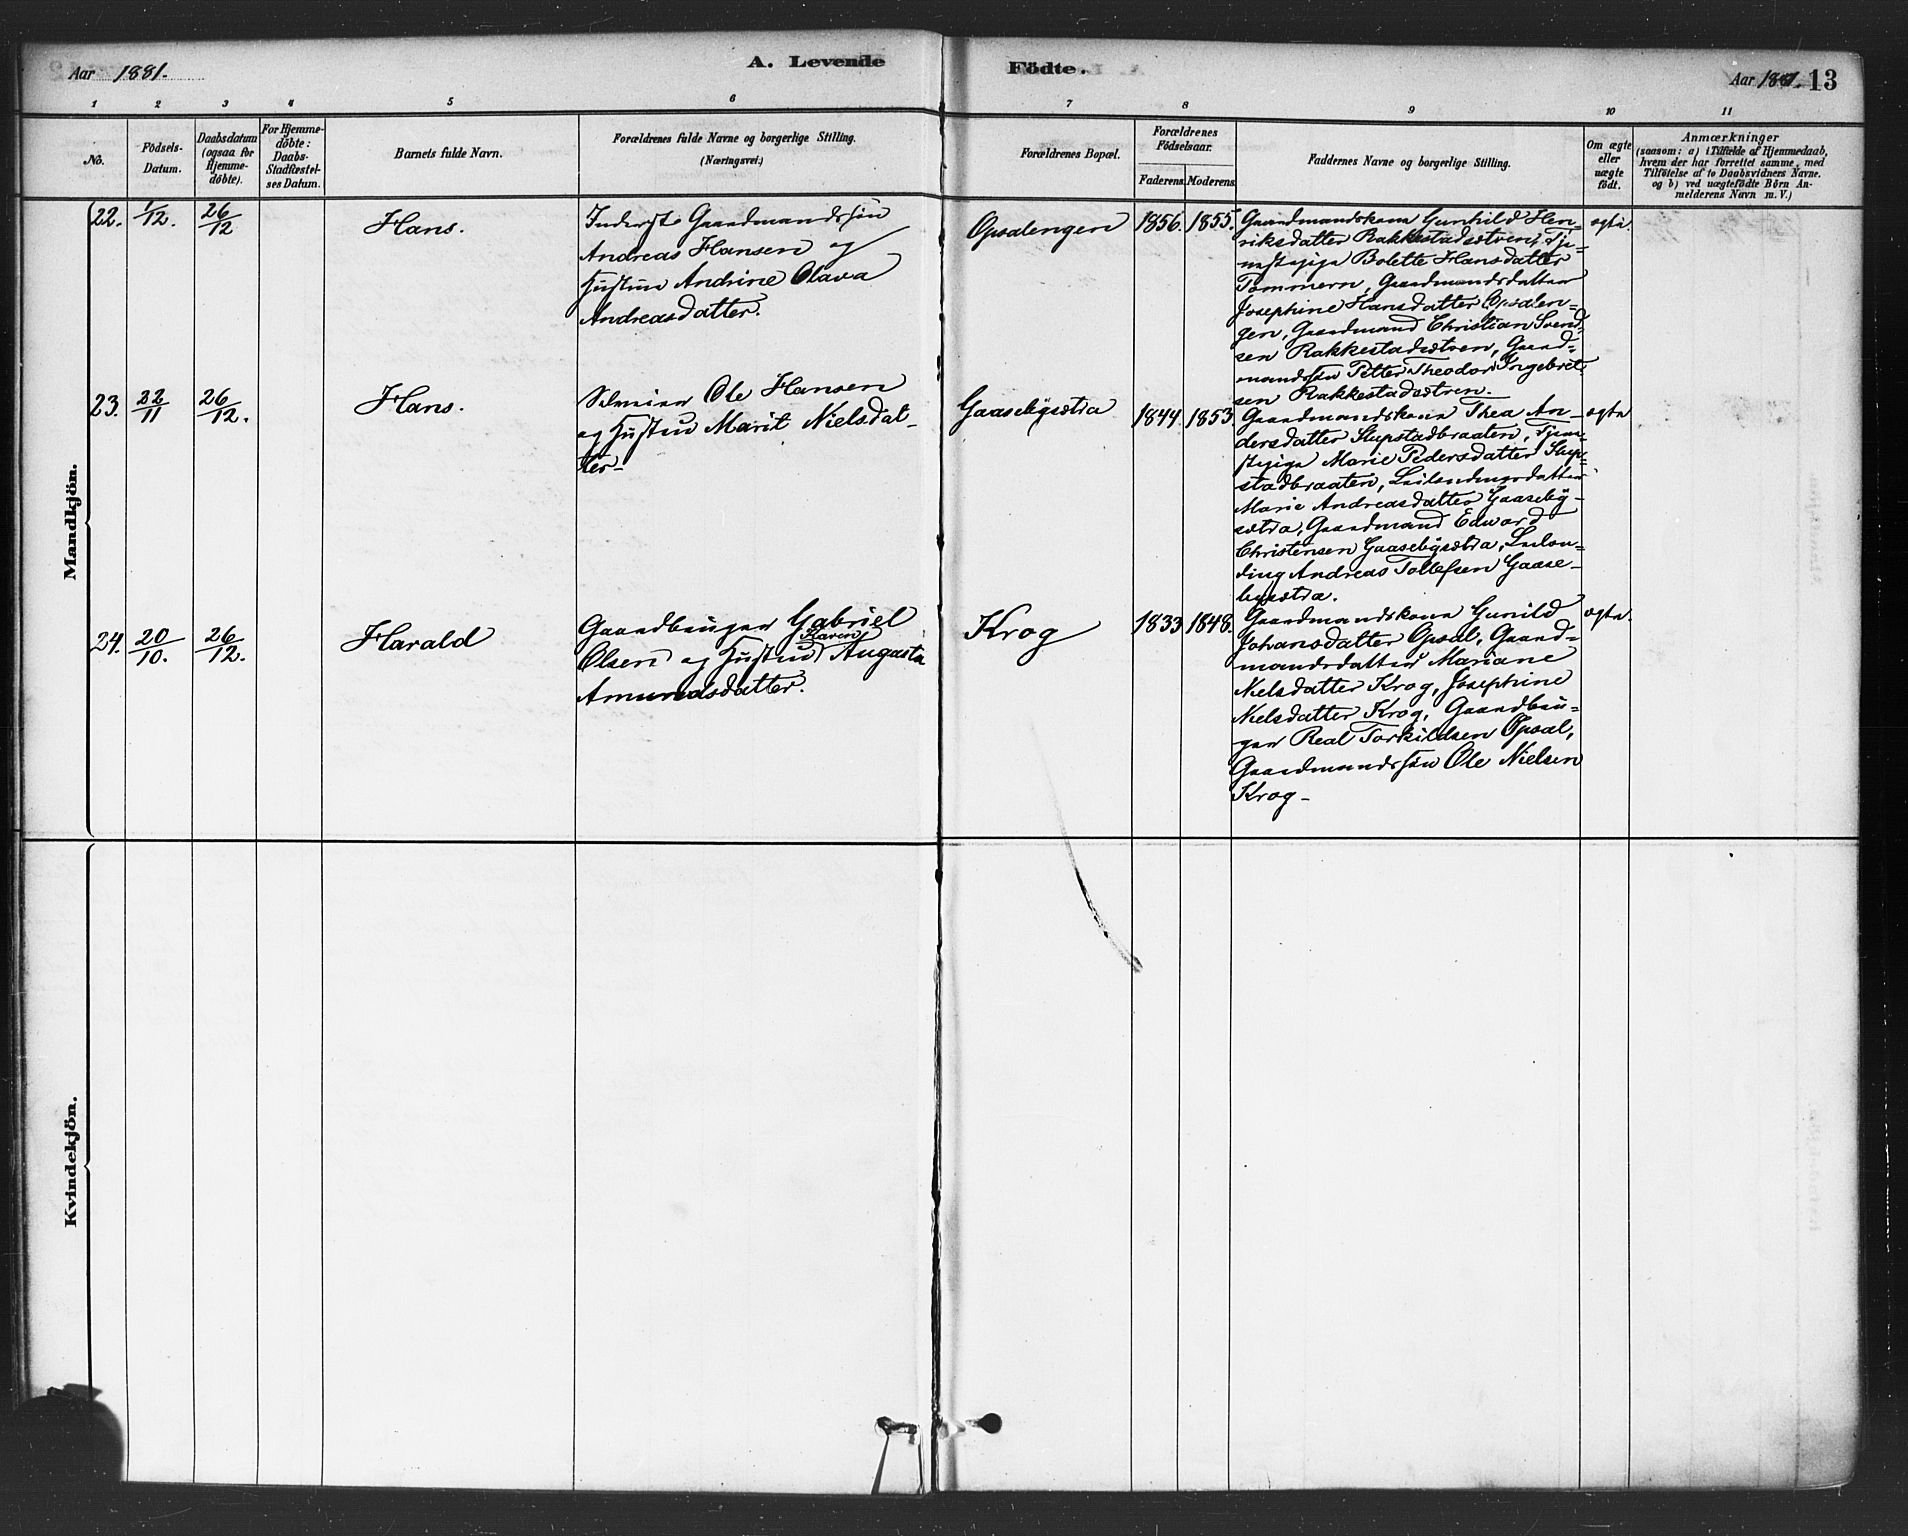 Aar 1881.
A. Levende
Födte.
Aar 1881. 13
1 2 3 4 5 6 7 8 9 10 11
No.
Födsels-
Datum.
Daabsdatum
(ogsaa for
Hjemme-
döbte).
For Hjemme-
döbte:
Daabs-
Stadfæstel-
ses Datum.
Barnets fulde Navn.
Forældrenes fulde Navne og borgerlige Stilling.
(Næringsvei.)
Forældrenes Bopæl.
Forældrenes
Födselsaar.
Faderens. Moderens.
Faddernes Navne og borgerlige Stilling.
Om ægte
eller
uægte
födt.
Anmærkninger
(saasom: a) i Tilfælde af Hjemmedaab,
hvem der har forrettet samme, med
Tilföielse af to Daabsvidners Navne.
og b) ved uægtefödte Börn An-
melderens Navn m. V.)
Mandkjön.
22. 1/12. 26/12 Hans.
Inderst Gaardmandssön
Andreas Hansen og
Hustru Andrine Olava
Andreasdatter.
Opsalengen 1856. 1855.
Gaardmandskone Gunhild Hen-
riksdatter Rakkestadsætren, Tje-
nestepige Bolette Hansdatter
Tommern, Gaardmandsdatter
Josephine Hansdatter Opsalen-
gen, Gaardmand Christian Svend-
sen Rakkestadsætren, Gaard-
mandssön Petter Theodor Ingebret-
sen Rakkestadsætren.
ægte.
23. 22/11 26/12. Hans.
Selveier Ole Hansen
og Hustru Marit Nielsdat-
ter-
Gaasebysætra 1844. 1853.
Gaardmandskone Thea An-
dersdatter Slupstadbraaten, Tjene-
stepige Marie Pedersdatter Slup-
stadbraaten, Leilendingsdatter
Marie Andreasdatter Gaaseby-
sætra, Gaardmand Edvard
Christensen Gaasebysætra, Leilæn-
ding Andreas Tollefsen Gaase-
bysætra.
ægte
24. 20/10. 26/12. Harald
Gaardbruger Gabriel
Olsen og Hustru Karen Augusta
Amundsdatter.
Krog 1833 1848.
Gaardmandskone Gunild
Johansdatter Opsal, Gaard-
mandsdatter Mariane
Nielsdatter Krog, Josephine
Nielsdatter Krog, Gaardbru-
ger Real Torkildsen Opsal,
Gaardmandssön Ole Nielsen
Krog-
ægte.
Kvindekjön.